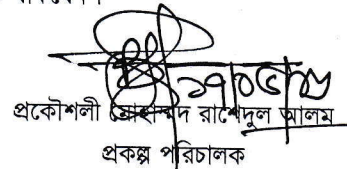 ১৭/০৫/
প্রকৌশলী মোহাম্মদ রাশেদুল আলম
প্রকল্প পরিচালক